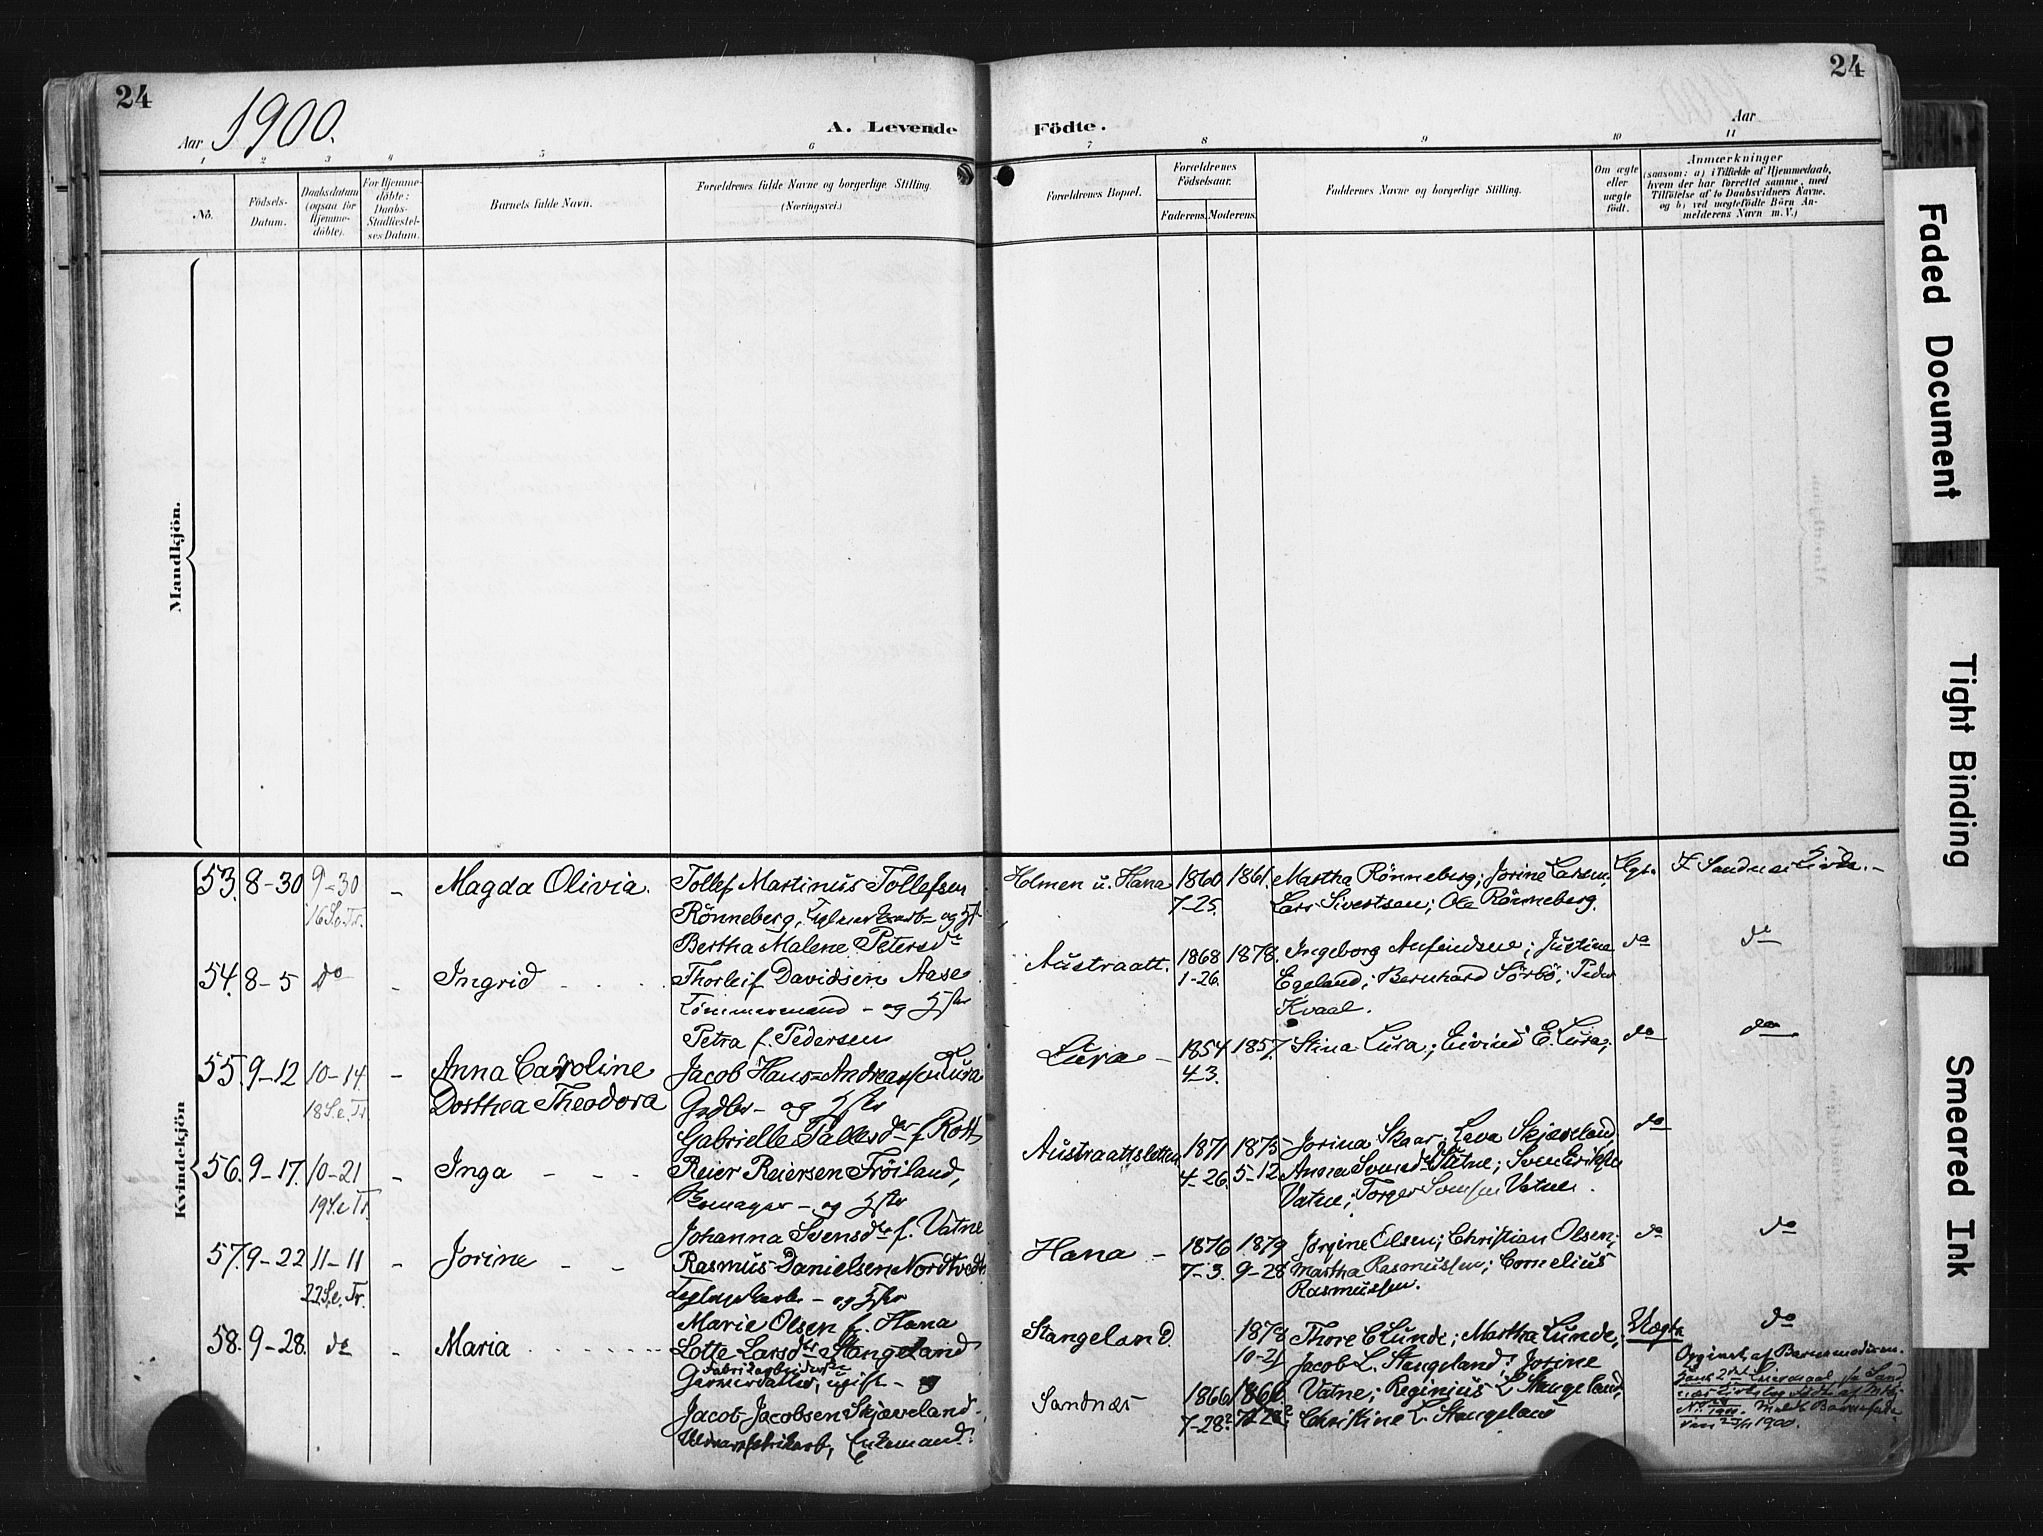 24
24
1900.
Aar
A. Levende
Födte.
Aar
1
2
3
4
5
6
7
8
9
10
11
No.
Födsels-
Datum.
Daabsdatum
(ogsaa for
Hjemme-
döbte).
For Hjemme-
döbte:
Daabs-
Stadfæstel-
ses-Datum.
Barnets fulde Navn.
Forældrenes fulde Navne og borgerlige Stilling
(Næringsvei.)
Forældrenes Bopæl.
Forældrenes
Födselsaar.
Faderens.
Moderens.
Faddernes Navne og borgerlige Stilling.
Om ægte
eller
uægte
födt.
Anmærkninger
(saasom: a) i Tilfælde af Hjemmedaab,
hvem der har forrettet samme, med
Tilföielse af to Daabsvidners Navne.
og b) ved uægtefödte Börn An-
melderens Navn m. V.)
Mandkjön.
Kvindekjön
53. 8-30 9-30 - Magda Olivia.
16 S. e. Tr.
Tollef Martinus Tollefsen
Rönneberg, og Hst
Bertha Malene Petersdr
Holmen u. Hana
1860 1861.
7-25.
Martha Rönneberg; Jorine Larsen,
Lars Sivertsen; Ole Rönneberg.
Ægte.
I Sandnes Kirke.-
54. 8-5 do - Ingrid
Thorleif Davidsen Aase
Tömmermand - og Hstr
Petra f. Pedersen
Austraatt.
1868 1878.
1-26.
Ingeborg Anfindsen; Justine
Egeland; Bernhard Sörbö; Peder
Kvaal.
do
do
55. 9-12 10-14 - Anna Caroline
18 S. e. Tr. Dorthea Theodora
Jacob Hans-Andreassen Lura
Grdbr - og Hstr
Gabrielle Tallesdr f. Rott
Lura -
1854 1857.
4-3.
Stina Lura; Eivind E. Lura;
do
do
56. 9-17. 10-21 - Inga
19 S. e. Tr.
Reier Reiersen Fröiland,
- og Hstr
Johanna Svensdr f. Vatne
Austraattsletten
1871 1875
4-26. 5-12
Jorina Skaar; Lava Skjæveland,
Anna Svensdr Vatne; Sven Eriksen
Vatne; Torger Svensen Vatne.
do
57. 9-22 11-11 - Jorine
22 S. e. Tr.
Rasmus Danielsen Nordtvedt.
- og Hstr
Marie Olsen f. Hana
Hana -
1876 1879
7-3. 9-28
Jorgine Olsen; Christian Olsen;
Martha Rasmussen; Cornelius
Rasmussen.
do
do
58. 9-28. do - Maria
Lotte Larsdr Stangeland
Fabrikarbeiderske
Gaardmandsdatter, ugift - og
Jacob Jacobsen Skjæveland.
Uldvarefabrikarb, Enkemand.
Stangeland.
Sandnæs
1878
10-21
1866 1866.
7-28? 7-28?
Thore C Lunde; Martha Lunde;
Jacob L. Stangeland; Jorine
Vatne; Reginius L. Stangeland;
Christine L. Stangeland
Uægte
do
Opgivet af Barnemoderen.
1900.
Faded Document
Tight Binding
Smeared Ink